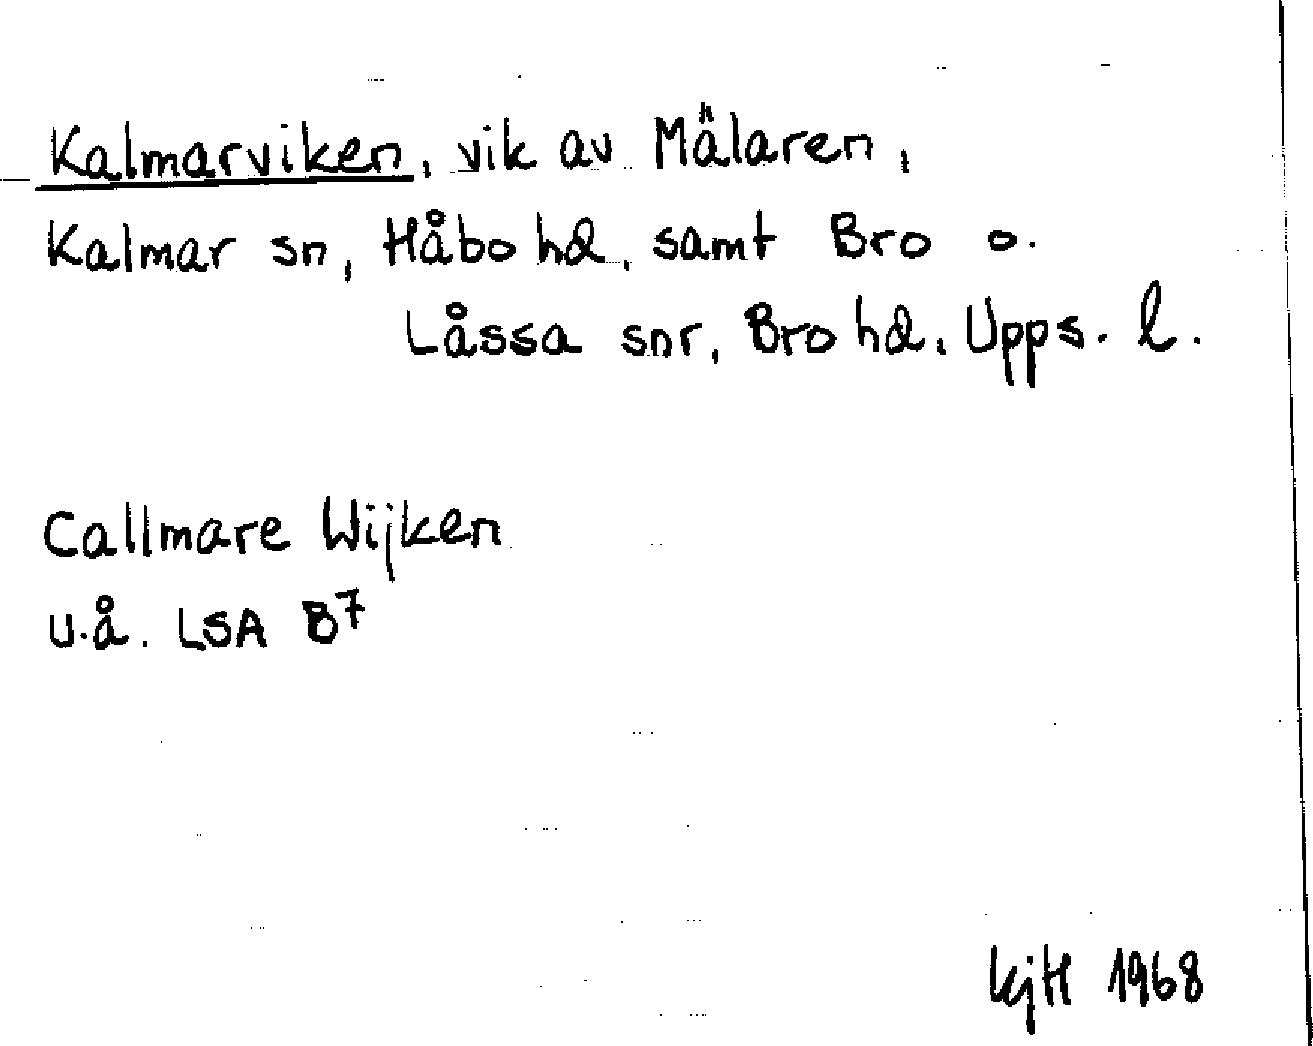 Kalmarviken, vik av Mälaren,
Kalmar sn, Håbo hd, samt Bro o.
Låssa snr, Bro hd, Upps. l.
Callmare Wijken
u.å. LSA B7
KjH 1968